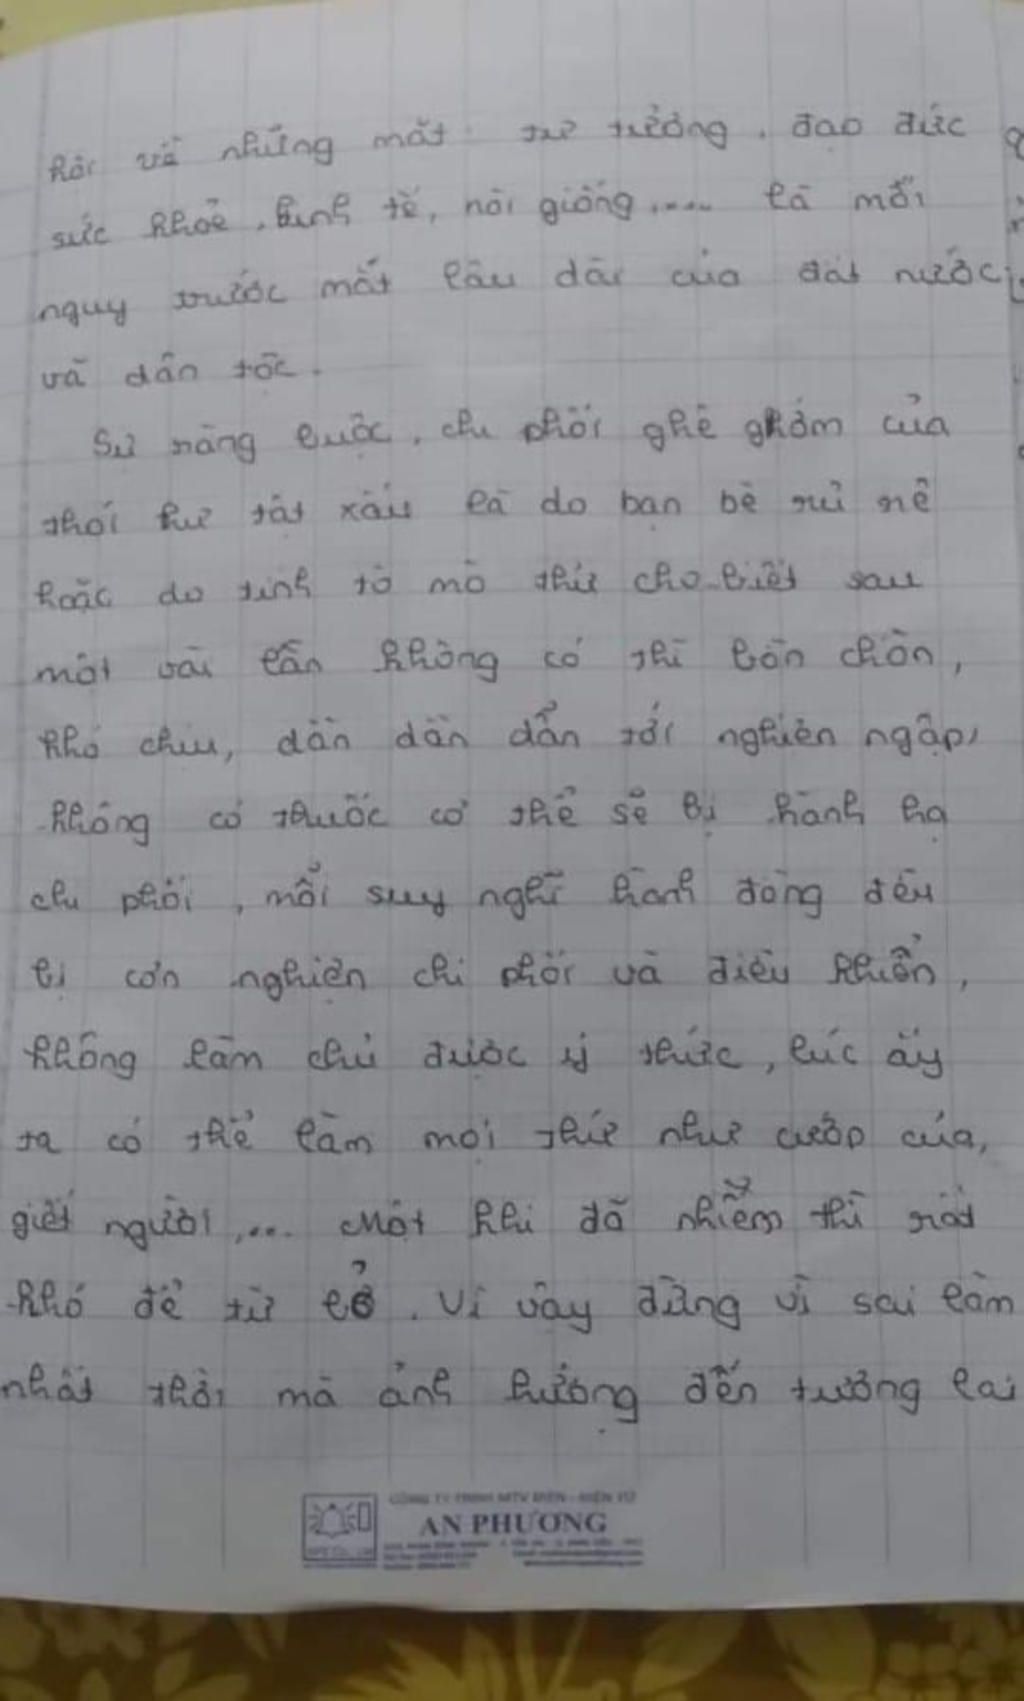 hội về những mặt tư tưởng, đạo đức
sức khỏe, kinh tế, nòi giống,.... là mối
nguy trước mắt lâu dài của đất nước
và dân tộc.
Sự ràng buộc, chi phối ghê ghớm của
thói hư tật xấu là do bạn bè rủ rê
hoặc do tính tò mò thử cho biết sau
một vài lần không có thì bồn chồn,
khó chịu, dần dần dẫn tới nghiện ngập,
không có thuốc cơ thể sẽ bị hành hạ
chi phối, mỗi suy nghĩ hành động đều
bị cơn nghiện chi phối và điều khuển,
không làm chủ được ý thức, lúc ấy
ta có thể làm mọi thứ như cướp của,
giết người,... Một khi đã nhiễm thì rất
khó để từ bỏ. Vì vậy đừng vì sai lầm
nhất thời mà ảnh hưởng đến tương lai
CÔNG TY TNHH MTV ĐIỆN - ĐIỆN TỬ
AN PHƯƠNG